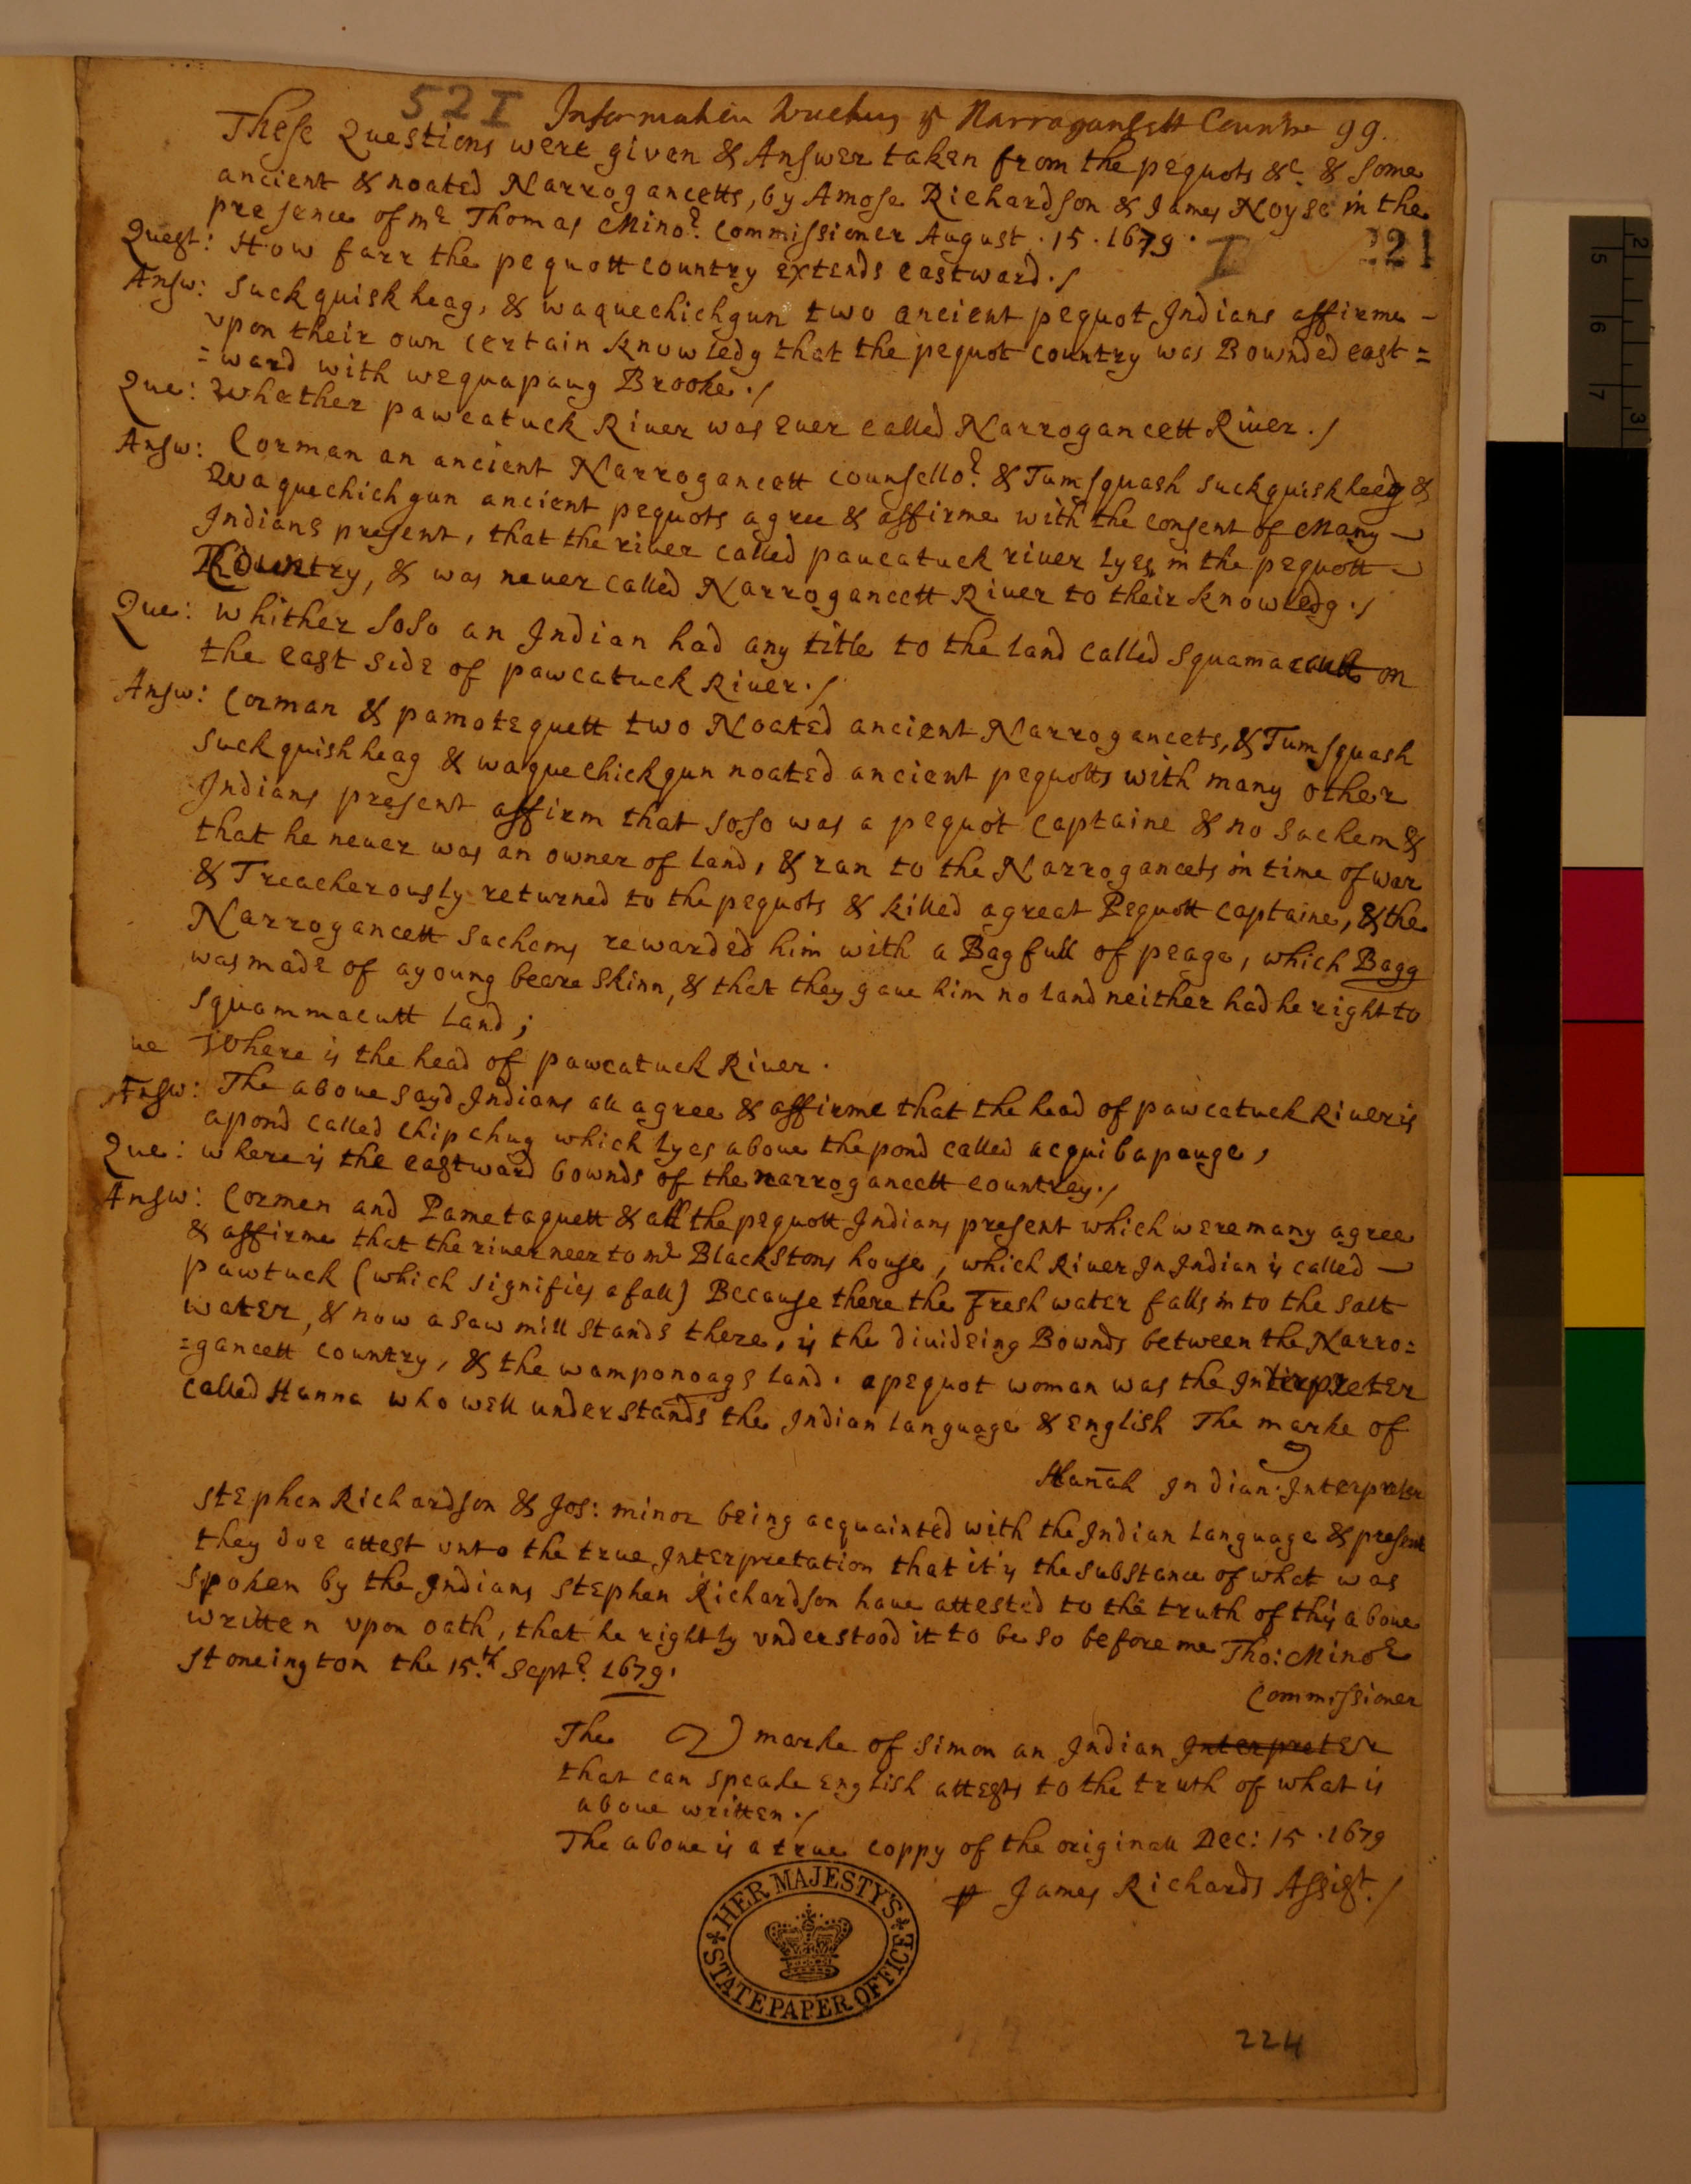 52 I Information touching yᵉ Narrogansett Countre 99.
These Questions were given & Answer taken from the pequots &c. & some
ancient & noated Narrogancetts, by Amose Richardson & James Noyse in the
presence of mr Thomas Minor. Commissioner August . 15 . 1679 .
I 221
Quest: How farr the pequott country extends eastward ./
Answ: Suckquiskheag, & waquechichgun two ancient pequot Indians affirme -
vpon their own certain knowledg that the pequot country was Bownded east=
=ward with wequapaug Brooke ./
Que: Whether pawcatuck River was euer called Narrogancett Riuer ./
Answ: Corman an ancient Narrogancett counsellor & Tumsquash suckquiskheeg &
Waquechichgun ancient pequots agree & affirme with the consent of Many -
Indians present, that the riuer called paucatuck riuer lyes in the pequott -
Country, & was neuer called Narrogancett Riuer to their knowledg ./
Que: whither Soso an Indian had any title to the land called Squamacutt on
the east side of pawcatuck Riuer ./
Answ: Corman & pamotequett two Noated ancient Narrogancets, & Tumsquash
Suckquishheag & waquechickgun noated ancient pequotts with many other
Indians present affirm that soso was a pequot Captaine & no Sachem &
that he neuer was an owner of land, & ran to the Narrogancets in time of war
& Treacherously returned to the pequots & killed a great Pequott captaine, & the
Narrogancett Sachems rewarded him with a Bagfull of peage, which Bagg
was made of a young beare Skinn, & that they gaue him no land neither had he right to
Squammacutt Land ;
ue Where is the head of pawcatuck Riuer .
Answ: The aboue sayd Indians all agree & affirme that the head of pawcatuck Riuer is
a pond called Chipchug which lyes aboue the pond called acquibapauge ,
Que: where is the eastward bownds of the narrogancett countrey ./
Answ: Cormen and Pametaquett & all the pequott Indians present which were many agree
& affirme that the riuer neer to mr Blackstons house, which Riuer In Indian is called -
pawtuck (which signifies a fall) Because there the Fresh water falls in to the salt
water, & now a saw mill stands there, is the diuideing Bownds between the Narro=
=gancett country, & the wamponoags land . a pequot woman was the Interpreter
called Hanna who well understands the Indian language & English The marke of
Hannah Indian Interpreter
Stephen Richardson & Jos: minor being acquainted with the Indian Language & present
they doe attest vnto the true Interpretation that it is the substance of what was
spoken by the Indians Stephen Richardson haue attested to the truth of this aboue
written vpon oath, that he rightly vnderstood it to be so before me Tho: Minor
Stoneington the 15.th Septr 1679 .
Commissioner
The marke of Simon an Indian Interpreter
that can speake English attests to the truth of what is
aboue written ./
The aboue is a true coppy of the originall Dec: 15 . 1679
James Richards Assist. /
HER MAJESTY'S
STATE PAPER OFFICE
224
2
5
6
7
3